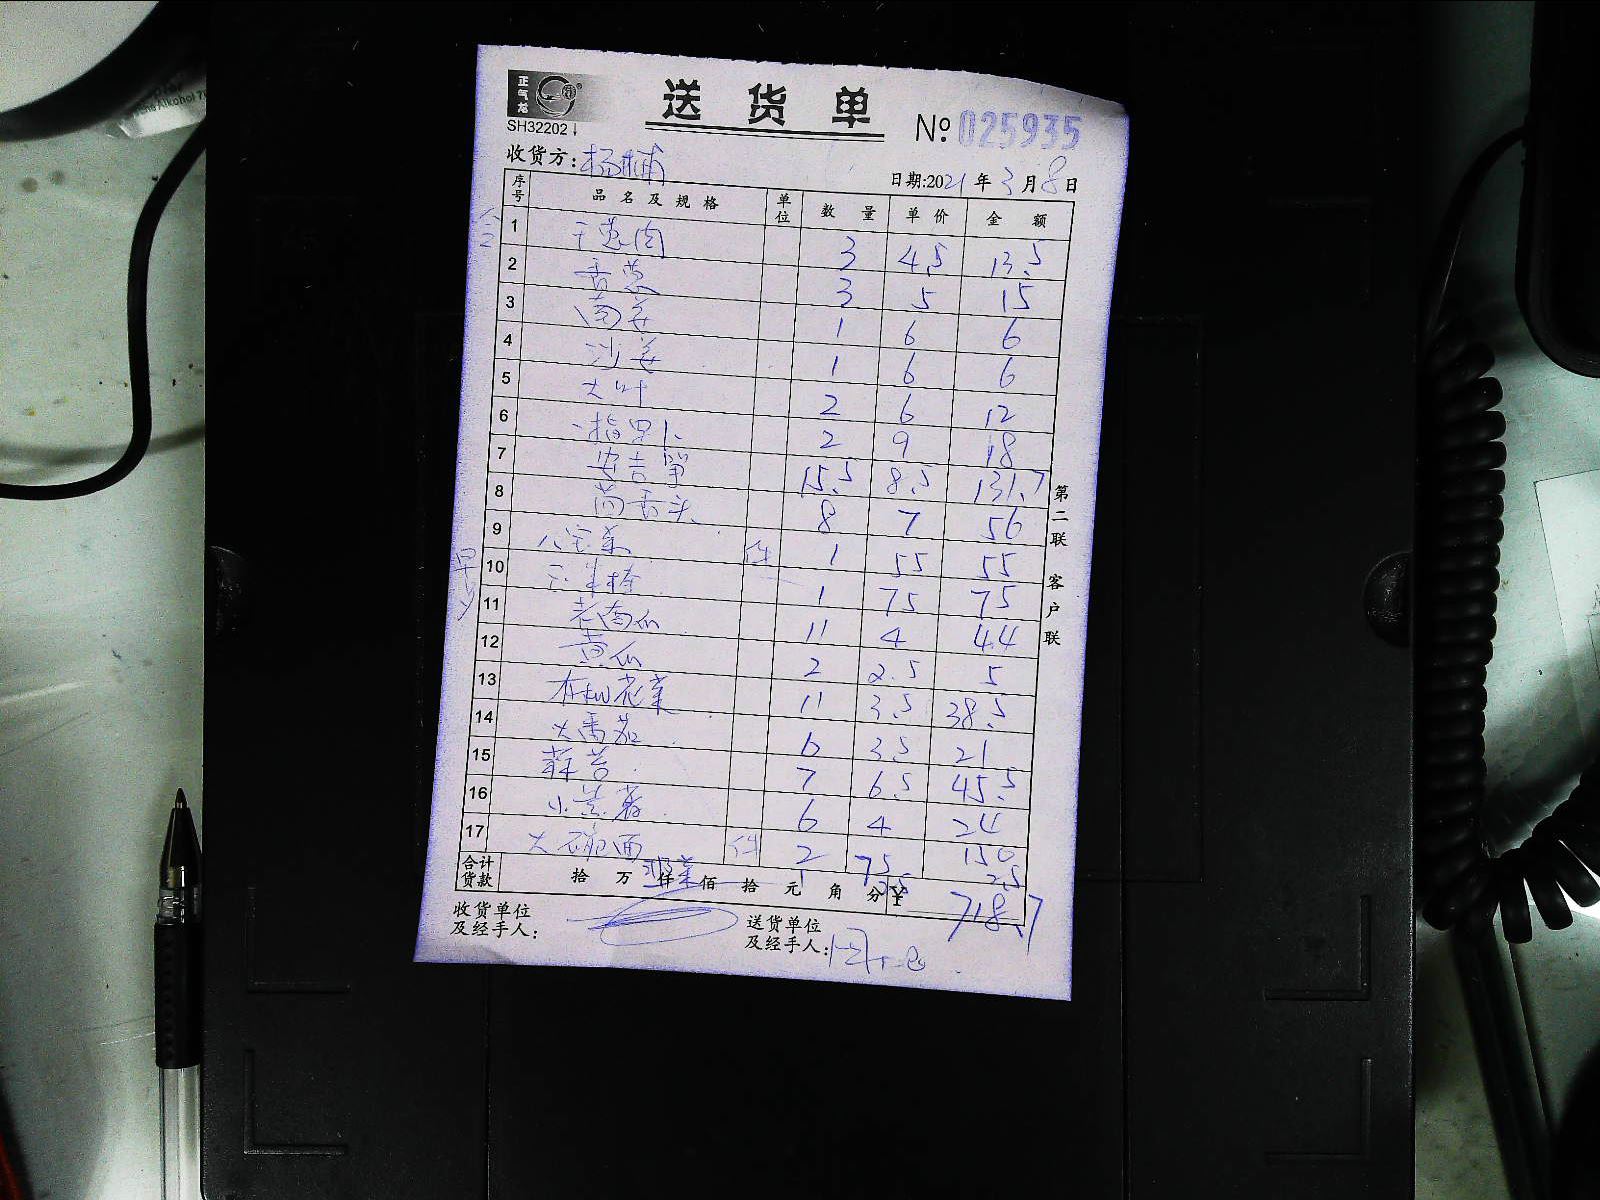 正气龙
送货单
SH32202
№ 025935
收货方: 杨辅
日期:2021年3月8日
序号 品名及规格 单位 数量 单价 金额
1 干葱肉 3 4.5 13.5
2 香葱 3 5 15
3 南姜 1 6 6
4 沙姜 1 6 6
5 大叶 2 6 12
6 一指罗卜 2 9 18
7 安吉笋 15.5 8.5 131.7
8 8 7 56
9 八宝菜 件 1 55 55
10 1 75 75
11 老南瓜 11 4 44
12 黄瓜 2 2.5 5
13 有机花菜 11 3.5 38.5
14 大番茄 6 3.5 21
15 7 6.5 45.5
16 小黄 6 4 24
17 大 面 件 2 75 150
菜 1 2.5
合计货款 拾 万 仟 佰 拾 元 角 分 ¥ 718.7
收货单位及经手人:
送货单位及经手人:
第二联 客户联
Alkohol